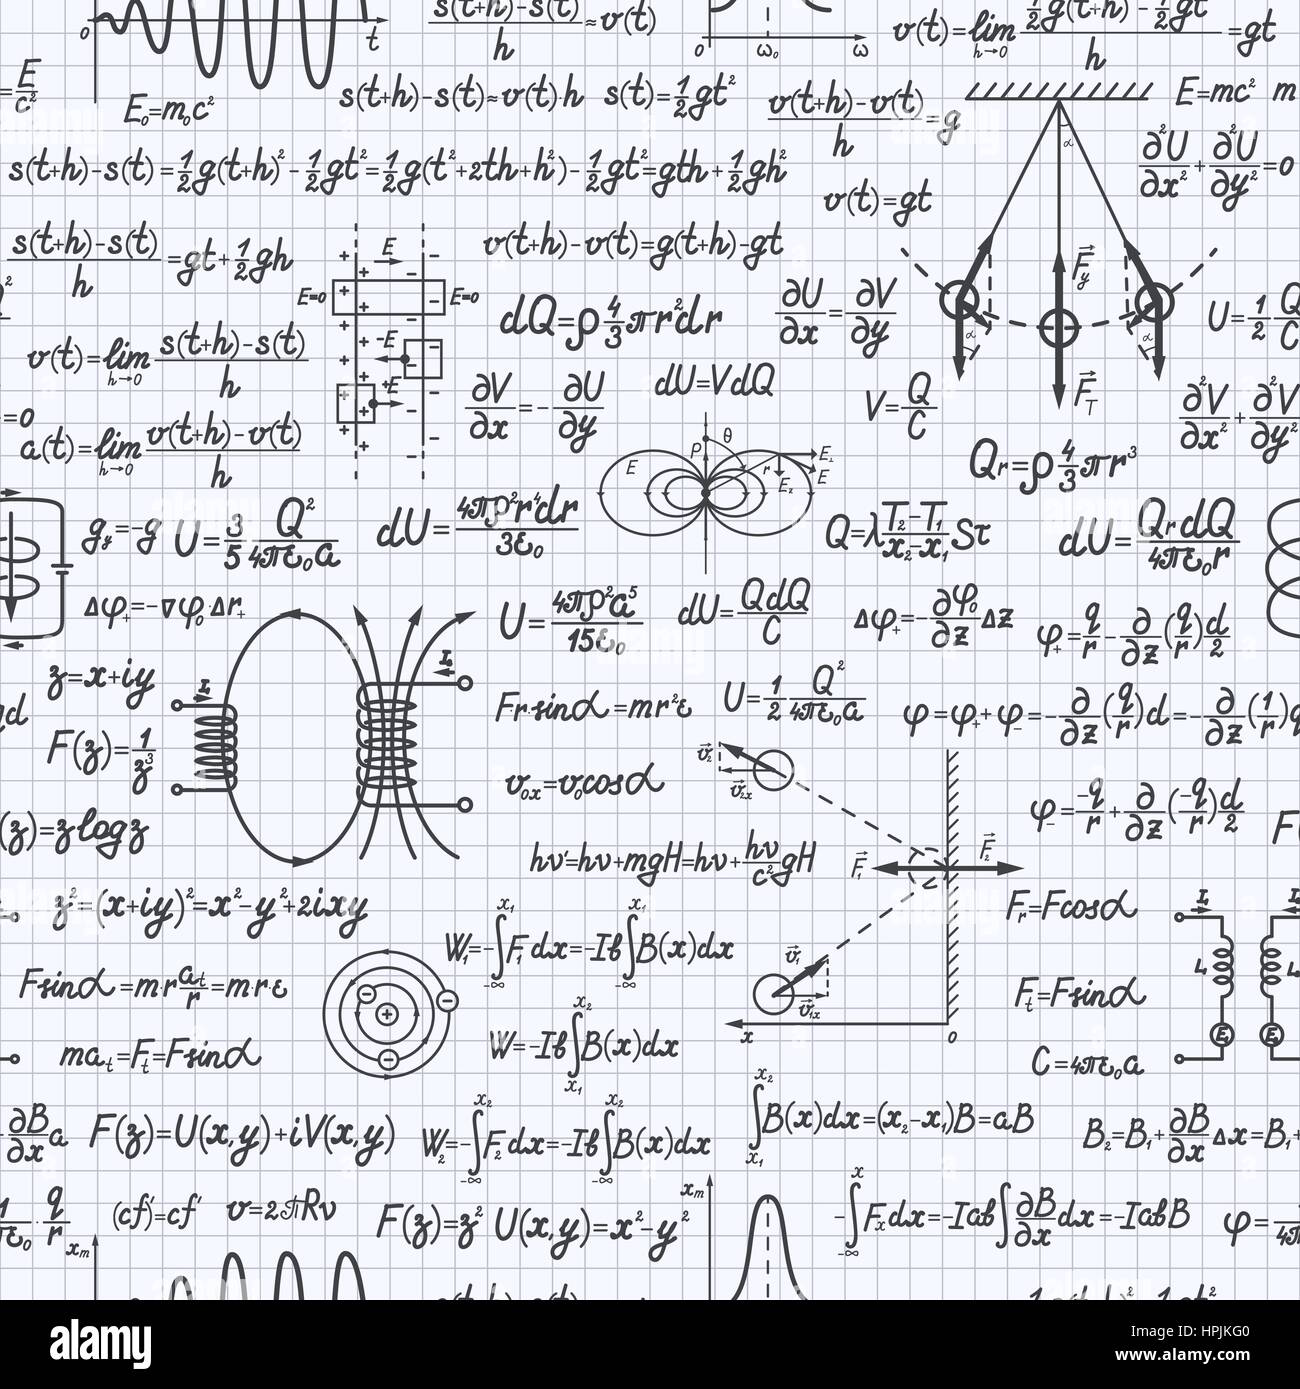 s(t+h)-s(t)/h≈v(t)
v(t)=lim h→0 ½g(t+h)-½gt/h=gt
0 t
0 ω₀ ω
=E/c²
E₀=m₀c²
s(t+h)-s(t)≈v(t)h
s(t)=½gt²
v(t+h)-v(t)/h=g
E=mc² m
α
∂²U/∂x²+∂²U/∂y²=0
s(t+h)-s(t)=½g(t+h)²-½gt²=½g(t²+2th+h²)-½gt²=gth+½gh²
v(t)=gt
s(t+h)-s(t)/h=gt+½gh
E
E=0 E=0
-E
+E
v(t+h)-v(t)=g(t+h)-gt
F⃗y
dQ=ρ4/3πr²dr
∂U/∂x=∂V/∂y
U=½Q/C
α α
v(t)=lim h→0 s(t+h)-s(t)/h
F⃗T
∂V/∂x=-∂U/∂y
dU=VdQ
V=Q/C
∂²V/∂x²+∂²V/∂y²
=0
a(t)=lim h→0 v(t+h)-v(t)/h
E ρ θ r E⊥ E Ez
Qr=ρ4/3πr³
gy=-g
U=3/5 Q²/4πε₀a
dU=4πρ²r⁴dr/3ε₀
Q=λT₂-T₁/x₂-x₁Sτ
dU=QrdQ/4πε₀r
Δφ₊=-∇φ₀·Δr₊
U=4πρ²a⁵/15ε₀
dU=QdQ/C
Δφ₊=-∂φ₀/∂zΔz
φ₊=q/r-∂/∂z(q/r)d/2
z=x+iy
I₁
I₁
Fr·sinα=mr²ε
U=½Q²/4πε₀a
φ=φ₊+φ₋=-∂/∂z(q/r)d=-∂/∂z(1/r)q
F(z)=1/z³
v₀x=v₀cosα
v⃗₂
v⃗₂x
φ₋=-q/r+∂/∂z(-q/r)d/2
(z)=z log z
hν'=hν+mgH=hν+hν/c²gH
F⃗₁ F⃗₂
z²=(x+iy)²=x²-y²+2ixy
Fr=Fcosα
I₁
W₁=-∫F₁dx=-Ib∫B(x)dx
x₁ -∞ x₁ -∞
v⃗₁
v⃗₁x
Fsinα=m·r at/r=m·r·ε
Ft=Fsinα
L₁ L₂
E₁ E₂
W=-Ib∫B(x)dx
x₂ x₁
x 0
mat=Ft=Fsinα
C=4πε₀a
∂B/∂x a
F(z)=U(x,y)+iV(x,y)
W₂=-∫F₂dx=-Ib∫B(x)dx
x₂ -∞ x₂ -∞
∫B(x)dx=(x₂-x₁)B=aB
x₂ x₁
B₂=B₁+∂B/∂xΔx=B₁+
q/r
xm
(cf)'=cf'
v=2πRν
F(z)=z²
U(x,y)=x²-y²
xm
-∫Fxdx=-Iab∫∂B/∂x dx=-IabB
x -∞
φ=
alamy
Image ID: HPJKG0
www.alamy.com